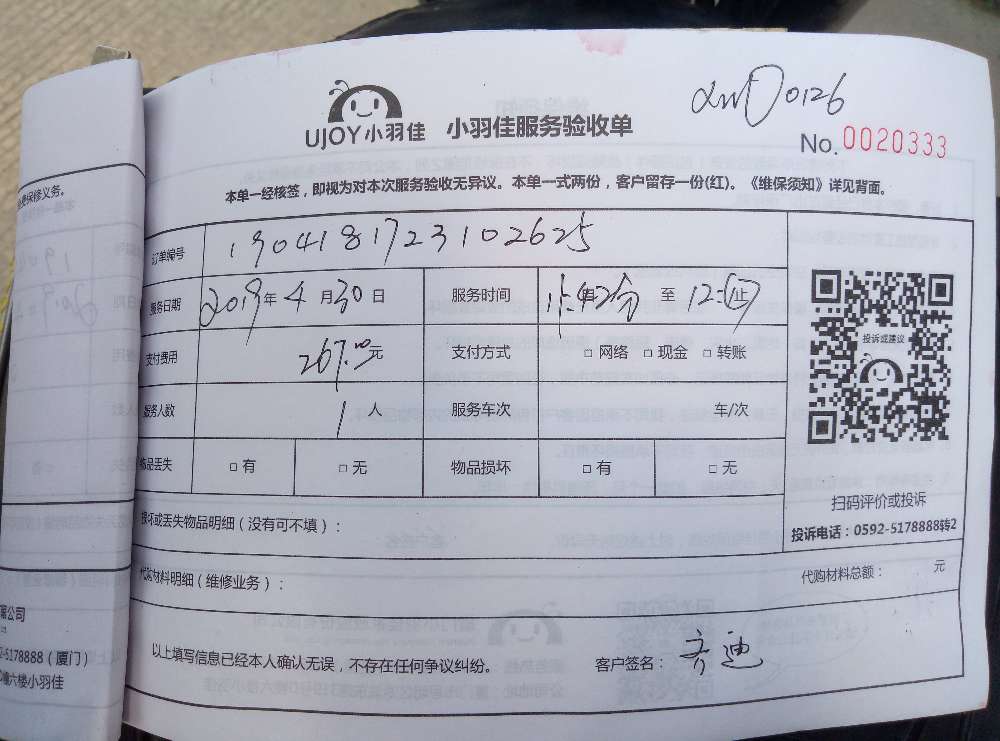 0126
UJOY小羽佳 小羽佳服务验收单
No. 0020333
本单一经核签，即视为对本次服务验收无异议。本单一式两份，客户留存一份(红)。《维保须知》详见背面。
免费保修义务。
订单编号 1904181723102625
服务日期 2019年4月30日 服务时间 11:42分 至 12:止
支付费用 267.00元 支付方式 □网络 □现金 □转账
服务人数 1人 服务车次 车/次
物品丢失 □有 □无 物品损坏 □有 □无
投诉或建议
扫码评价或投诉
投诉电话：0592-5178888转2
损坏或丢失物品明细（没有可不填）：
代购材料明细（维修业务）：
代购材料总额： 元
以上填写信息已经本人确认无误，不存在任何争议纠纷。 客户签名：齐迪
公司
2-5178888（厦门）
幢六楼小羽佳